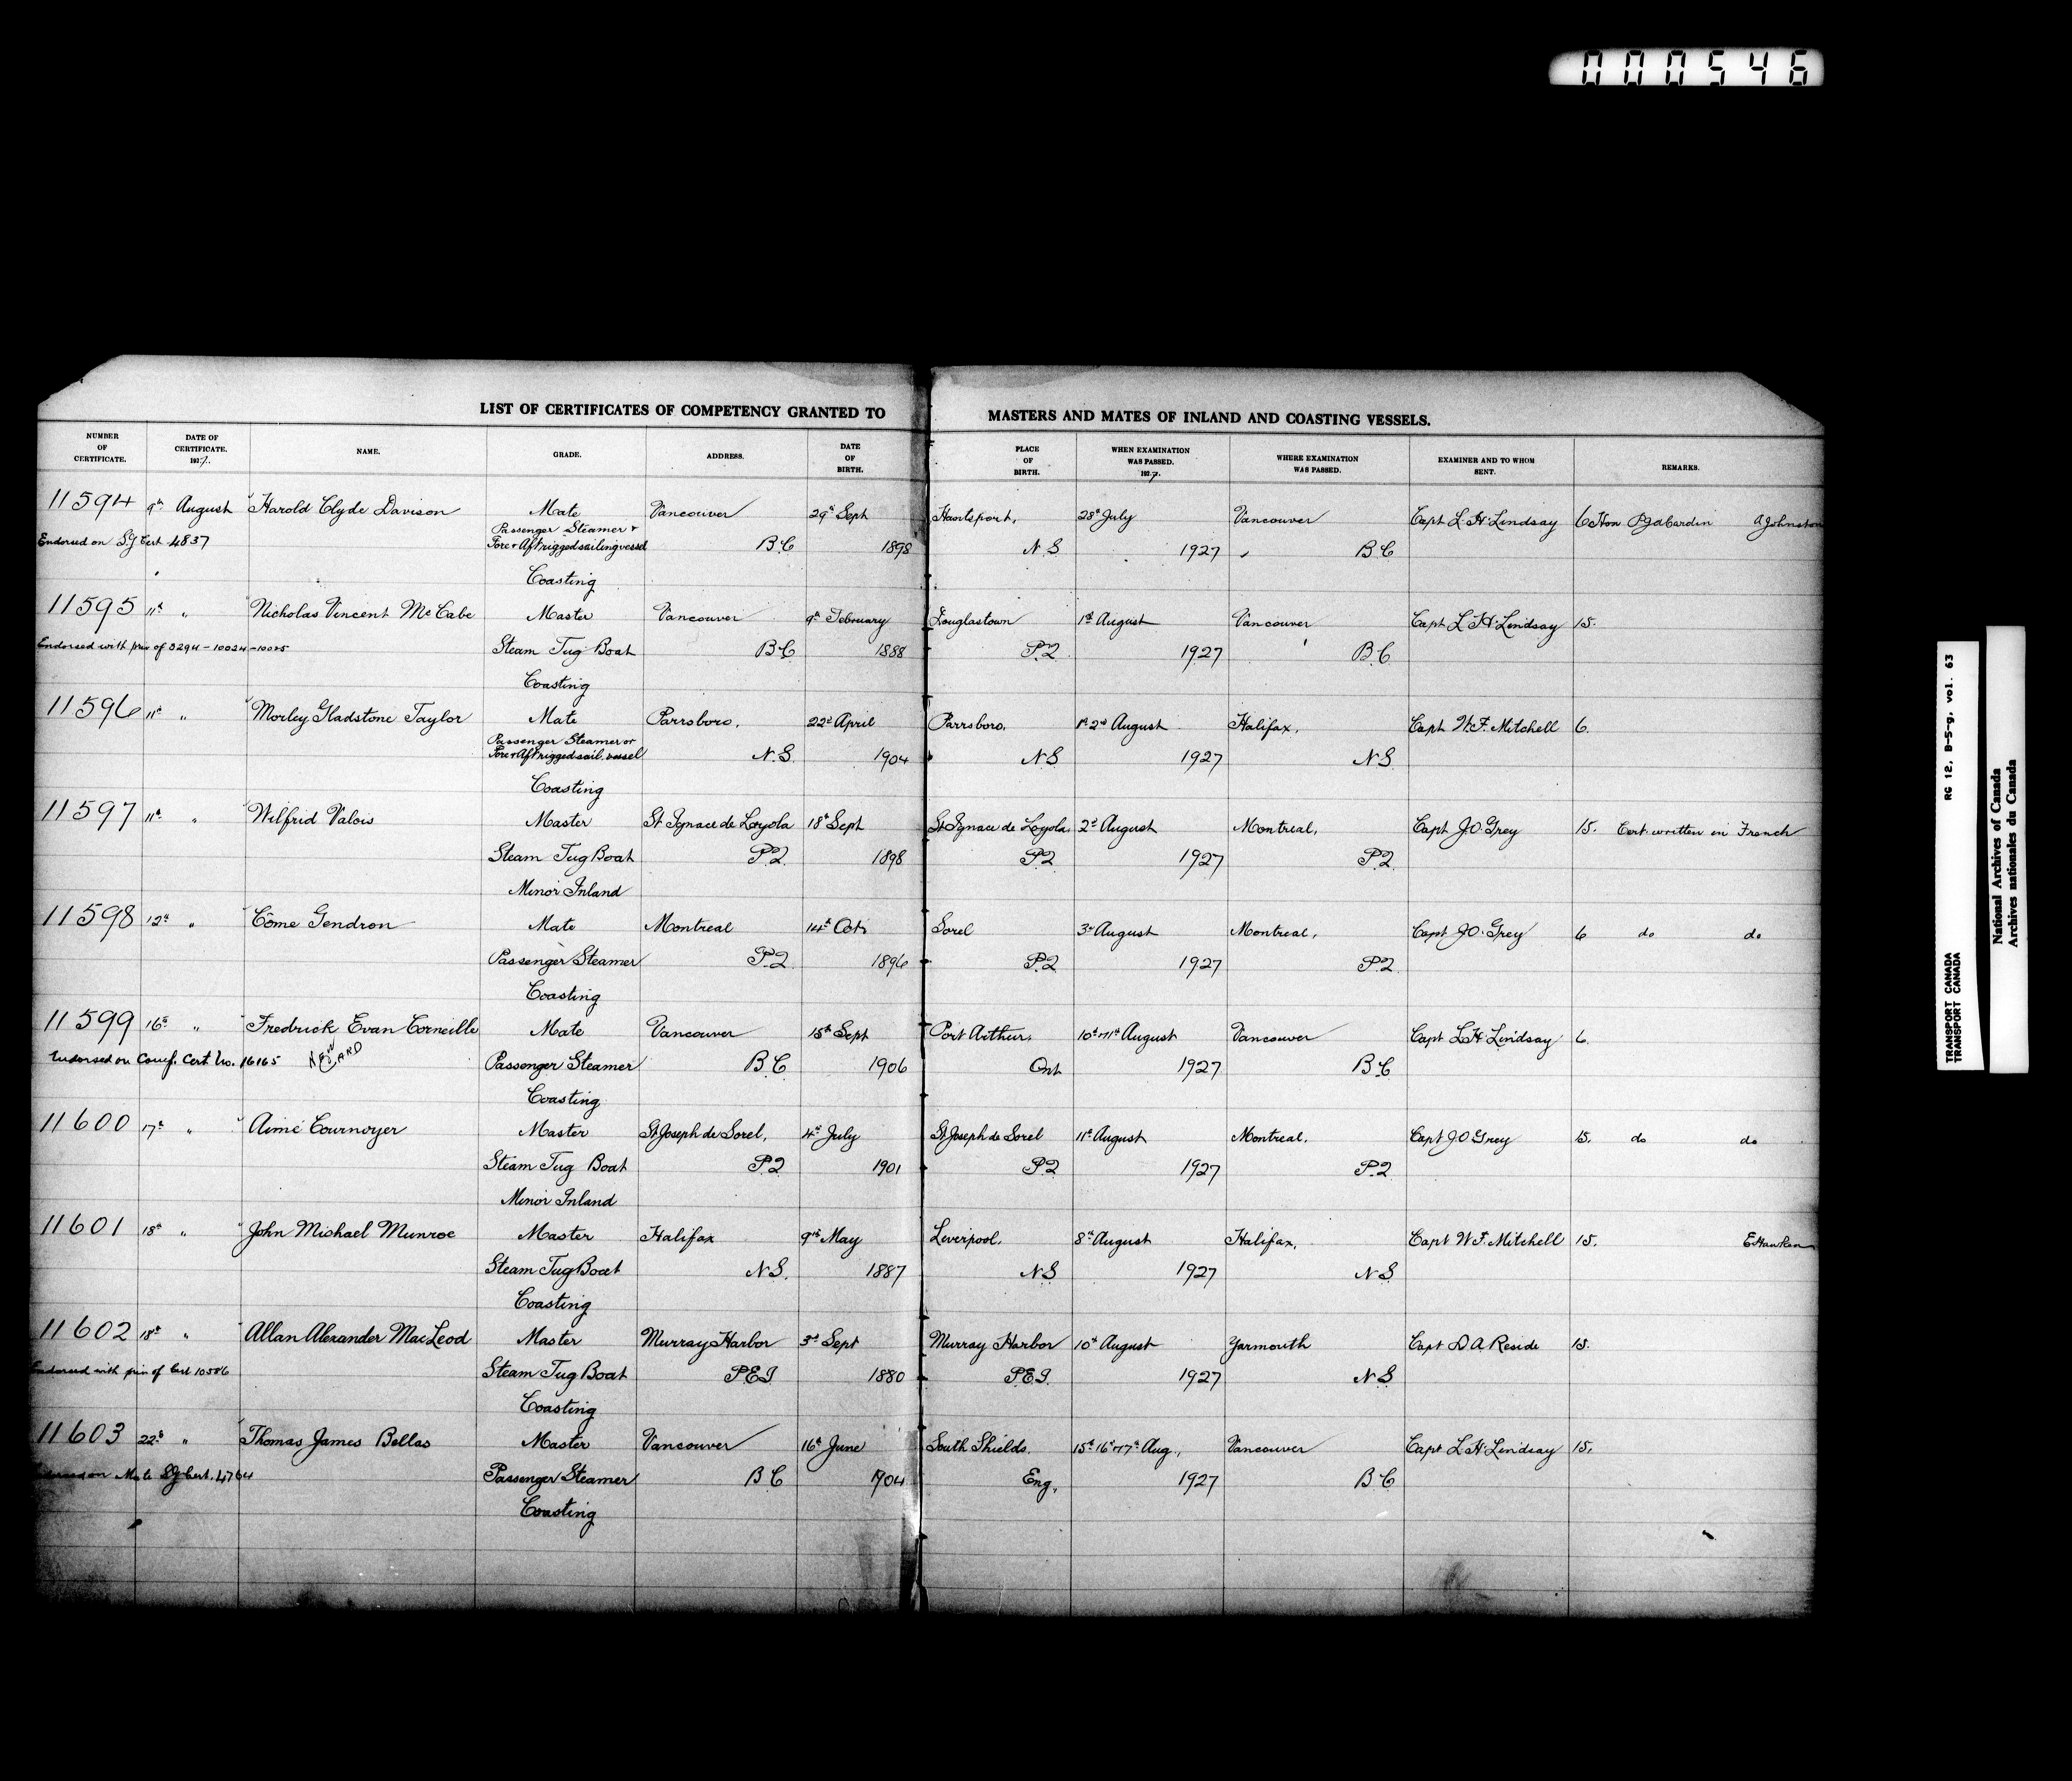 000546
LIST OF CERTIFICATES OF COMPETENCY GRANTED TO MASTERS AND MATES OF INLAND AND COASTING VESSELS.
NUMBER OF CERTIFICATE. DATE OF CERTIFICATE. 1927. NAME. GRADE. ADDRESS. DATE OF BIRTH. PLACE OF BIRTH. WHEN EXAMINATION WAS PASSED. 1927. WHERE EXAMINATION WAS PASSED. EXAMINER AND TO WHOM SENT. REMARKS.
11594 9th August Harold Clyde Davison Mate Vancouver 29th Sept Hantsport, 28th July Vancouver Capt L. H. Lindsay 6 Hon PJA Cardin A Johnston
Passenger Steamer +
Endorsed on SG Cert 4837 Fore + Aft rigged sailing vessel B.C 1898 N.S 1927 B.C
Coasting
11595 11th " Nicholas Vincent McCabe Master Vancouver 9th February Douglastown 1st August Vancouver Capt L. H. Lindsay 15.
Endorsed with priv of 3294 - 10024 - 10025 Steam Tug Boat B.C 1888 P.Q 1927 B.C
Coasting
11596 11th " Morley Gladstone Taylor Mate Parrsboro, 22nd April Parrsboro, 1st 2nd August Halifax, Capt W. F. Mitchell 6.
Passenger Steamer or
Fore + Aft rigged sail. vessel N.S. 1904 N.S 1927 N.S
Coasting
11597 11th " Wilfrid Valois Master St Ignace de Loyola 18th Sept St Ignace de Loyola, 2nd August Montreal, Capt J.O. Grey 15. Cert. written in French
Steam Tug Boat P.Q. 1898 P.Q 1927 P.Q
Minor Inland
11598 12th " Côme Gendron Mate Montreal 14th Oct. Sorel 3rd August Montreal, Capt J.O. Grey 6 do do
Passenger Steamer P.Q 1896 P.Q 1927 P.Q.
Coasting
11599 16th " Fredrick Evan Corneille Mate Vancouver 15th Sept Port Arthur, 10th + 11th August Vancouver Capt L. H. Lindsay 6.
Endorsed on Comp. Cert No. 16165 NEW CARD Passenger Steamer B.C 1906 Ont 1927 B.C
Coasting
11600 17th " Aimé Cournoyer Master St Joseph de Sorel, 4th July St Joseph de Sorel 11th August Montreal, Capt J.O Grey 15. do do
Steam Tug Boat P.Q 1901 P.Q 1927 P.Q
Minor Inland
11601 18th " John Michael Munroe Master Halifax 9th May Liverpool, 8th August Halifax, Capt W. F. Mitchell 15. E Hawken
Steam Tug Boat N.S. 1887 N.S 1927 N.S
Coasting
11602 18th " Allan Alexander MacLeod Master Murray Harbor 3rd Sept Murray Harbor 10th August Yarmouth Capt D A. Reside 15.
Endorsed with priv of Cert 10586 Steam Tug Boat P.E.I 1880 P.E.I. 1927 N.S
Coasting
11603 22nd " Thomas James Bellas Master Vancouver 16th June South Shields, 15th 16th + 17th Aug., Vancouver Capt L. H. Lindsay 15.
Endorsed on Mate SG Cert. 4764 Passenger Steamer B.C 1904 Eng, 1927 B.C
Coasting
RG 12, B-5-g, vol. 63
TRANSPORT CANADA
TRANSPORT CANADA
National Archives of Canada
Archives nationales du Canada